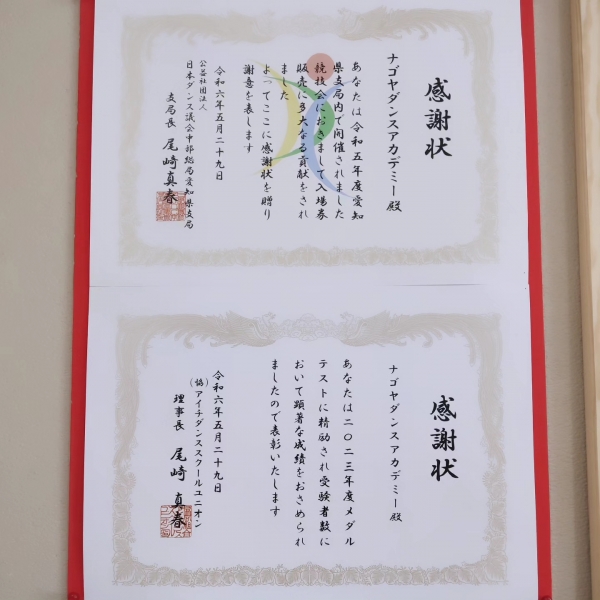 感謝状
ナゴヤダンスアカデミー殿
あなたは令和五年度愛知
県支局内で開催されました
競技会におきまして入場券
販売に多大なる貢献をされ
ました
よってここに感謝状を贈り
謝意を表します
令和六年五月二十九日
公益社団法人
日本ダンス議会中部総局愛知県支局
支局長 尾崎真春
感謝状
ナゴヤダンスアカデミー殿
あなたは二〇二三年度メダル
テストに精励され受験者数に
おいて顕著な成績をおさめられ
ましたので表彰いたします
令和六年五月二十九日
(協)アイチダンススクールユニオン
理事長 尾崎真春